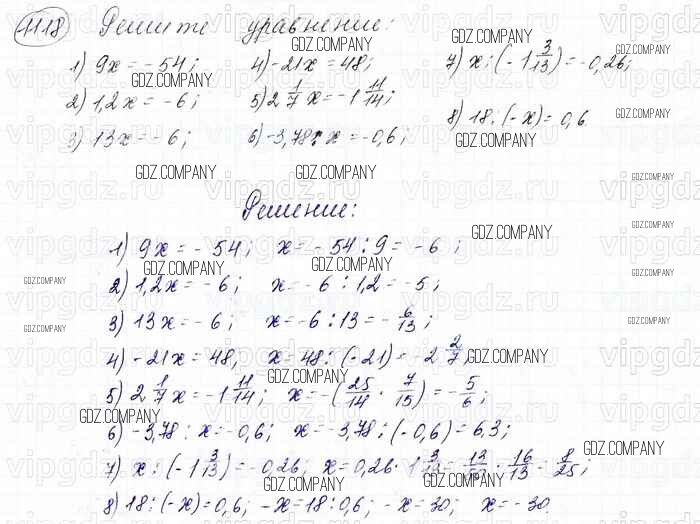 1118 Решите уравнение:
1) 9x = -54; 4) -21x = 48; 7) x : (-1 3/13) = -0,26;
2) 1,2x = -6; 5) 2 1/7 x = -1 11/14; 8) 18 : (-x) = 0,6
3) 13x = -6; 6) -3,78 : x = -0,6;
Решение:
1) 9x = -54; x = -54 : 9 = -6;
2) 1,2x = -6; x = -6 : 1,2 = -5;
3) 13x = -6; x = -6 : 13 = -6/13;
4) -21x = 48, x = 48 : (-21) = -2 2/7,
5) 2 1/7 x = -1 11/14; x = -(25/14 · 7/15) = -5/6;
6) -3,78 : x = -0,6; x = -3,78 : (-0,6) = 6,3;
7) x : (-1 3/13) = -0,26; x = 0,26 · 1 3/13 = 13/50 · 16/13 = 8/25;
8) 18 : (-x) = 0,6; -x = 18 : 0,6; -x = 30; x = -30.
GDZ.COMPANY
vipgdz.ru